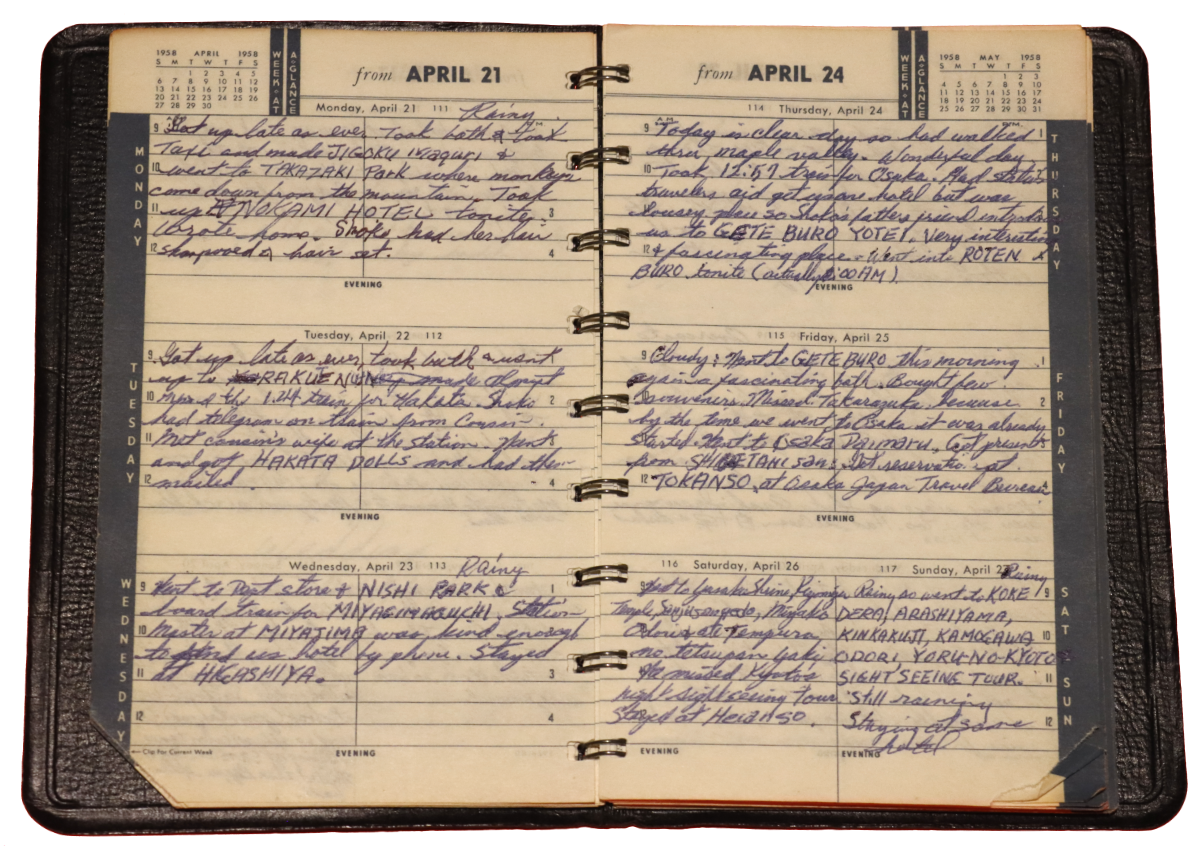 1958 APRIL 1958
S M T W T F S
1 2 3 4 5
6 7 8 9 10 11 12
13 14 15 16 17 18 19
20 21 22 23 24 25 26
27 28 29 30
WEEK-AT
A-GLANCE
from APRIL 21
Monday, April 21 111 Rainy
MONDAY
9 Got up late as ever. Took bath & took
Taxi and made JIGOKU &
10 went to TAKAZAKI Park where monkeys
come down from the mountain. Took
11 up HOTEL tonite. 3
Wrote home. Shoko had her hair
12 shampooed & hair set. 4
EVENING
Tuesday, April 22 112
TUESDAY
9 Got up late as ever, took bath & went
up to RAKUTENCHI made
10 the 1:24 train for Hakata. Shoko 2
had telegram on train from Cousin.
11 Met cousin's wife at the station. Went 3
and got HAKATA DOLLS and had them
12 mailed. 4
EVENING
Wednesday, April 23 113 Rainy
WEDNESDAY
9 Went to Dept store & NISHI PARK & 1
board train for MIYAJIMAGUCHI. Station
10 Master at MIYAJIMA was kind enough
to us hotel by phone. Stayed
11 at HIGASHIYA. 3
12 4
← Clip For Current Week
EVENING
from APRIL 24
WEEK-AT
A-GLANCE
1958 MAY 1958
S M T W T F S
1 2 3
4 5 6 7 8 9 10
11 12 13 14 15 16 17
18 19 20 21 22 23 24
25 26 27 28 29 30 31
114 Thursday, April 24
THURSDAY
A.M. P.M.
9 Today is clear day so had walked 1
thru maple valley. Wonderful day.
10 Took 12:57 train for Osaka. Had station 2
travelers aid get us one hotel but was
11 lousey place so Shoko's fathers friend
us to GETE BURO YOTEI. Very
12 & fascinating place. Went into ROTEN
BURO tonite (actually 2:00AM).
EVENING
115 Friday, April 25
FRIDAY
9 Cloudy: Went to GETEBURO this morning 1
again a fascinating bath. Bought few
10 souveniers. Missed Takarazuka because 2
by the time we went to Osaka it was already
11 started. Went to Osaka DAIMARU. Got presents
from SHIGETANI san. Got reservation at
12 TOKANSO at Osaka Japan Travel Bureau
EVENING
116 Saturday, April 26
9 to Shrine,
Temple, Sanjusangendo, Miyako
Odori & ate Tempura,
one tetsupan yaki
We missed Kyoto's
night sight seeing tour
Stayed at Heianso.
EVENING
117 Sunday, April 27 Rainy
SAT SUN
Rainy, so went to KOKE 9
DERA, ARASHIYAMA,
KINKAKUJI, KAMOGAWA 10
ODORI YORU-NO-KYOTO
SIGHT SEEING TOUR. 11
Still raining
Staying at same 12
hotel
EVENING